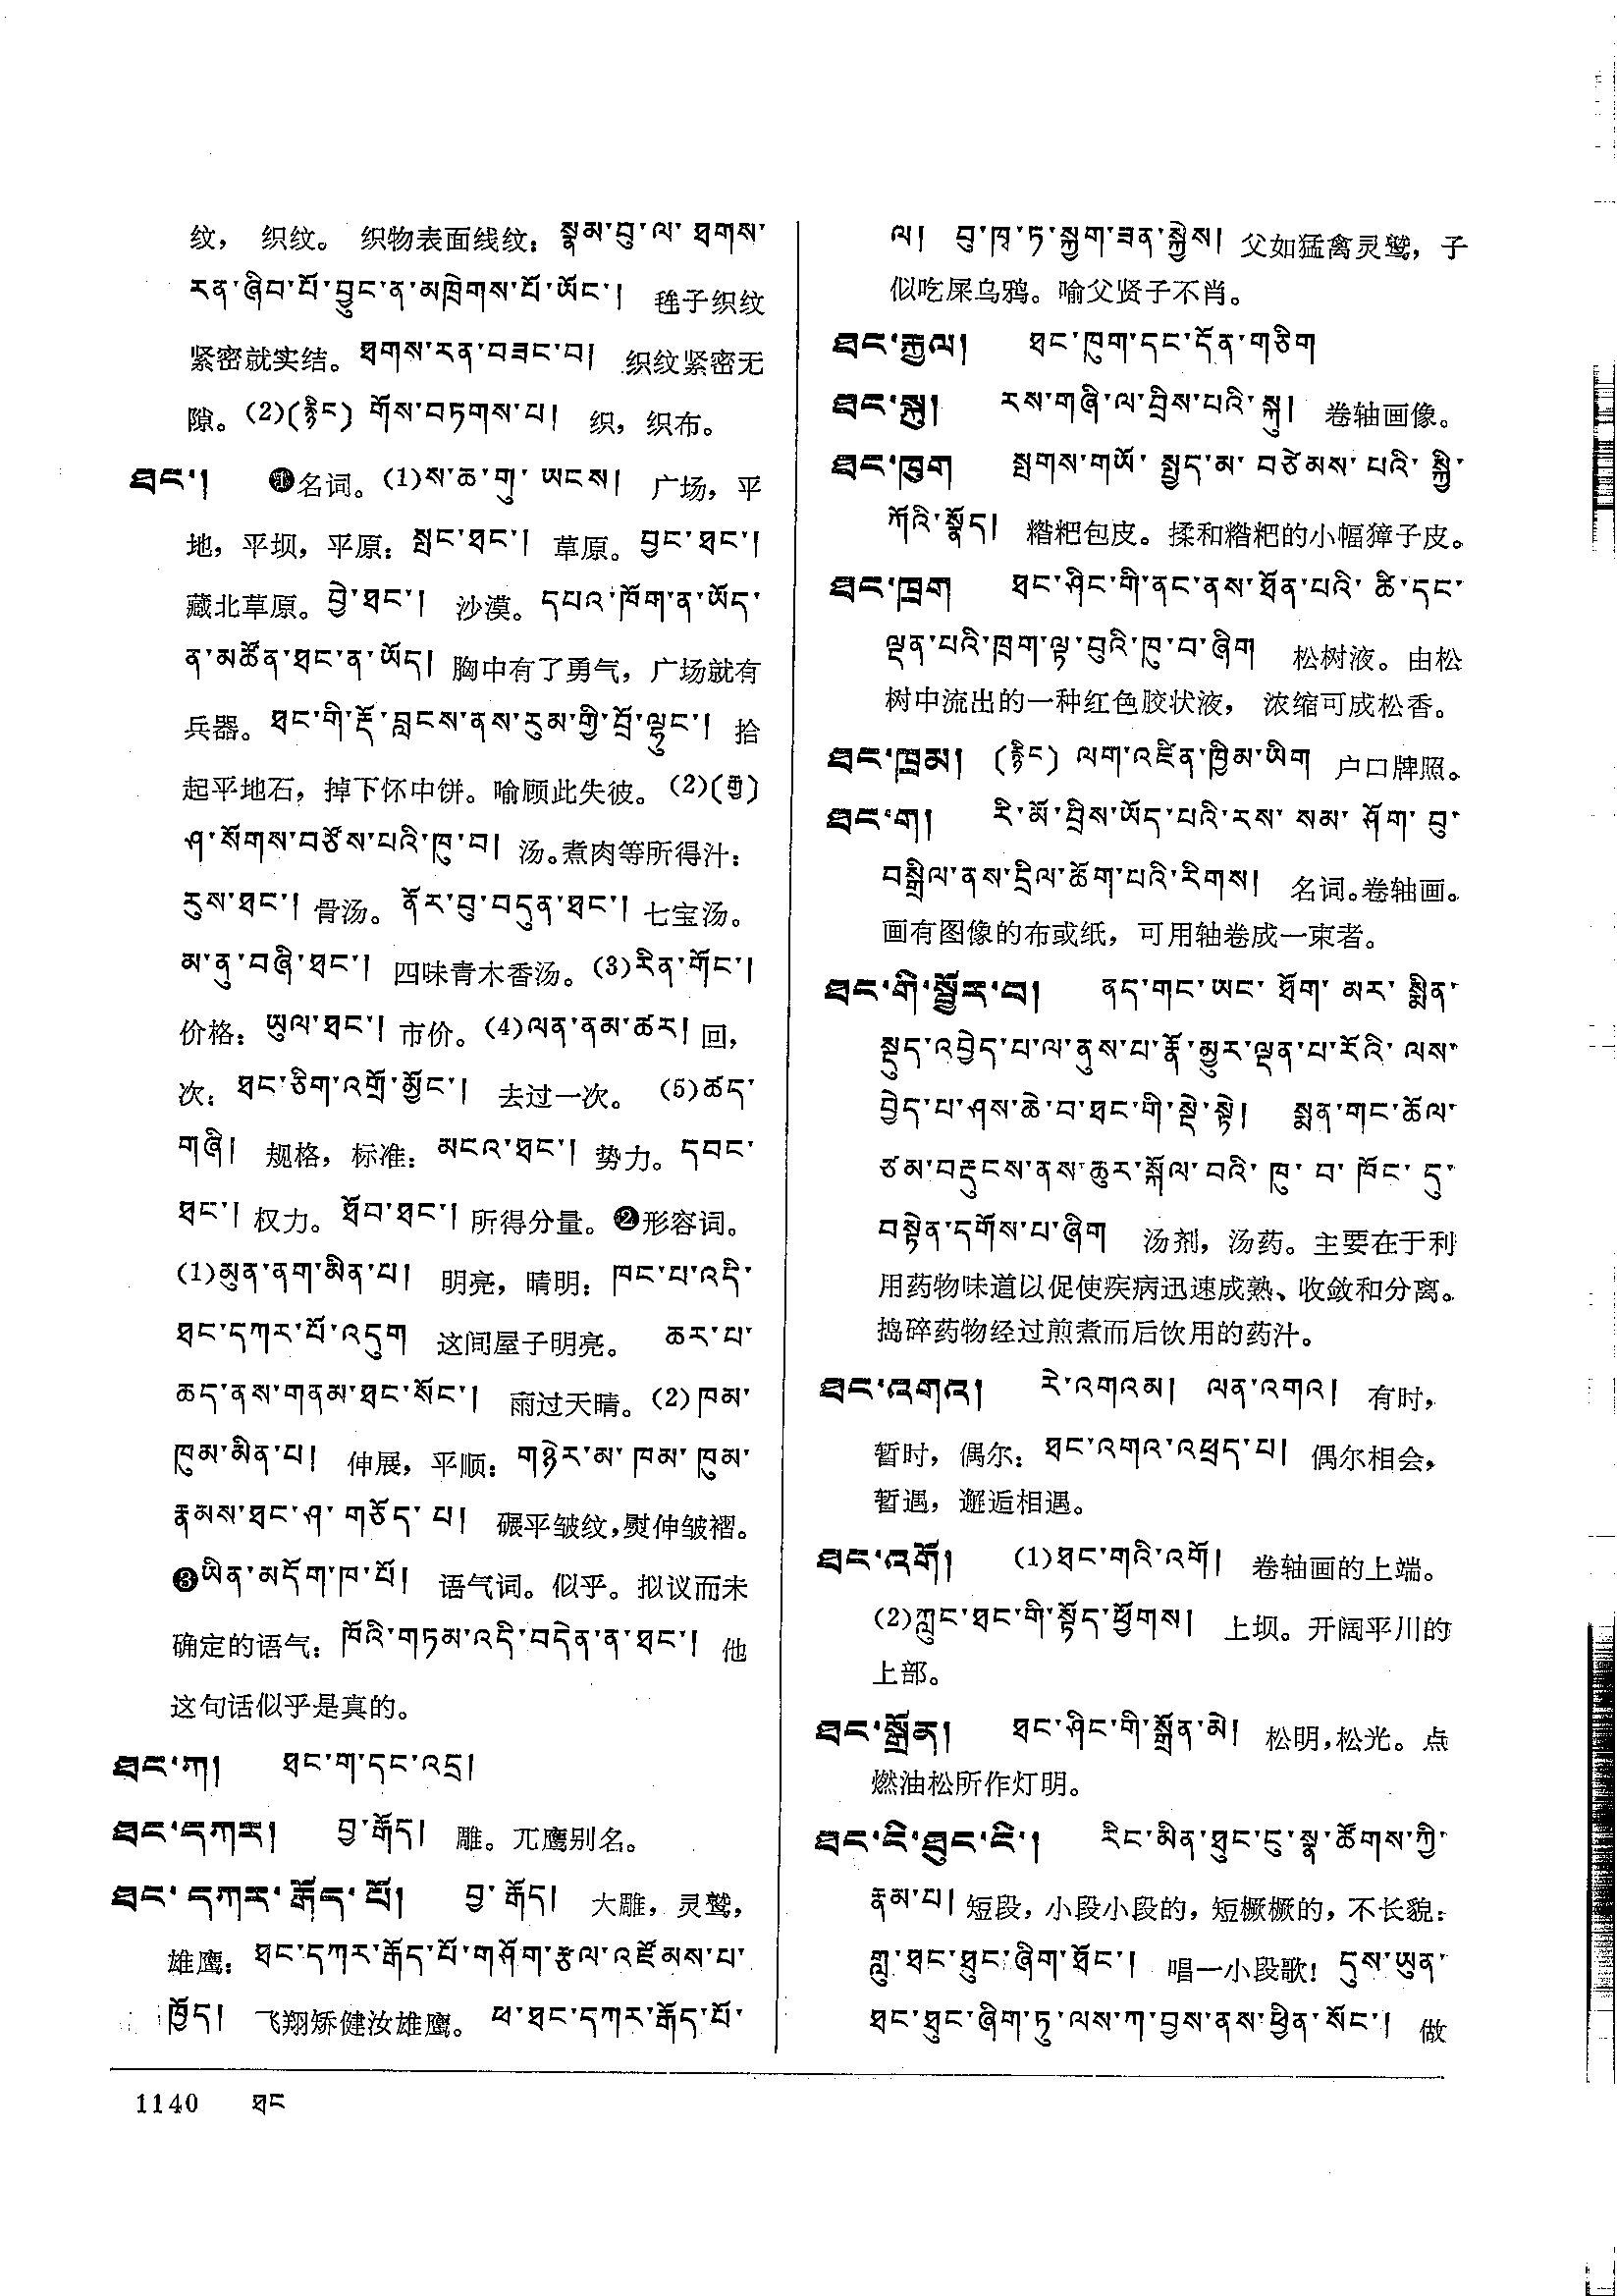 纹， 织纹。 织物表面线纹：སྣམ་བུ་ལ་ ཐགས་
རན་ཞིབ་པོ་བྱུང་ན་མཁྲེགས་པོ་ཡོང་། 氆子织纹
紧密就实结。ཐགས་རན་བཟང་བ། 织纹紧密无
隙。(2)(རྙིང) གོས་བཏགས་པ། 织，织布。
ཐང་། ❶名词。(1)ས་ཆ་གུ་ ཡངས། 广场，平
地，平坝，平原：སྤང་ཐང་། 草原。བྱང་ཐང་།
藏北草原。བྱེ་ཐང་། 沙漠。དཔའ་ཁོག་ན་ཡོད་
ན་མཚོན་ཐང་ན་ཡོད། 胸中有了勇气，广场就有
兵器。ཐང་གི་རྡོ་བླངས་ནས་རུམ་གྱི་བྲོ་ལྷུང་། 拾
起平地石，掉下怀中饼。喻顾此失彼。(2)(རྒྱ)
ཤ་སོགས་བཙོས་པའི་ཁུ་བ། 汤。煮肉等所得汁：
རུས་ཐང་། 骨汤。ནོར་བུ་བདུན་ཐང་། 七宝汤。
མ་ནུ་བཞི་ཐང་། 四味青木香汤。(3)རིན་གོང་།
价格：ཡུལ་ཐང་། 市价。(4)ལན་ནམ་ཚར། 回，
次：ཐང་ཅིག་འགྲོ་མྱོང་། 去过一次。 (5)ཚད་
གཞི། 规格，标准：མངའ་ཐང་། 势力。དབང་
ཐང་། 权力。ཐོབ་ཐང་། 所得分量。❷形容词。
(1)མུན་ནག་མིན་པ། 明亮，晴明：ཁང་པ་འདི་
ཐང་དཀར་པོ་འདུག 这间屋子明亮。 ཆར་པ་
ཆད་ནས་གནམ་ཐང་སོང་། 雨过天晴。(2)ཁམ་
ཁུམ་མིན་པ། 伸展，平顺：གཉེར་མ་ ཁམ་ ཁུམ་
རྣམས་ཐང་ཤ་ གཅོད་ པ། 碾平皱纹，熨伸皱褶。
❸ཡིན་མདོག་ཁ་པོ། 语气词。似乎。拟议而未
确定的语气：ཁོའི་གཏམ་འདི་བདེན་ན་ཐང་། 他
这句话似乎是真的。
ཐང་ཀ། ཐང་ག་དང་འདྲ།
ཐང་དཀར། བྱ་རྒོད། 雕。兀鹰别名。
ཐང་དཀར་རྒོད་པོ། བྱ་ རྒོད། 大雕，灵鹫，
雄鹰：ཐང་དཀར་རྒོད་པོ་གཤོག་རྩལ་འཛོམས་པ་
ཁྱོད། 飞翔矫健汝雄鹰。 ཕ་ཐང་དཀར་རྒོད་པོ་
ལ། བུ་ཁྭ་ཏ་སྐྱག་ཟན་སྐྱེས། 父如猛禽灵鹫，子
似吃屎乌鸦。喻父贤子不肖。
ཐང་རྐྱལ། ཐང་ཁུག་དང་དོན་གཅིག
ཐང་སྐུ། རས་གཞི་ལ་བྲིས་པའི་སྐུ། 卷轴画像。
ཐང་ཁུག སྤགས་གཡོ་ སྤྱད་མ་ བཙེམས་ པའི་ སྐྱི་
ཀོའི་སྣོད། 糌粑包皮。揉和糌粑的小幅獐子皮。
ཐང་ཁྲག ཐང་ཤིང་གི་ནང་ནས་ཐོན་པའི་ ཚི་དང་
ལྡན་པའི་ཁྲག་ལྟ་བུའི་ཁུ་བ་ཞིག 松树液。由松
树中流出的一种红色胶状液， 浓缩可成松香。
ཐང་ཁྲམ། (རྙིང) ལག་འཛིན་ཁྱིམ་ཡིག 户口牌照。
ཐང་ག། རི་མོ་བྲིས་ཡོད་པའི་རས་ སམ་ ཤོག་ བུ་
བསྒྲིལ་ནས་དྲིལ་ཆོག་པའི་རིགས། 名词。卷轴画。
画有图像的布或纸，可用轴卷成一束者。
ཐང་གི་སྦྱོར་བ། ནད་གང་ཡང་ ཐོག་ མར་ སྨིན་
སྡུད་འབྱེད་པ་ལ་ནུས་པ་རྣོ་མྱུར་ལྡན་པ་རོའི་ ལས་
བྱེད་པ་ཤས་ཆེ་བ་ཐང་གི་སྡེ་སྟེ། སྨན་གང་ཚོལ་
ཙམ་བརྡུངས་ནས་ཆུར་སྐོལ་བའི་ ཁུ་ བ་ ཁོང་ དུ་
བསྟེན་དགོས་པ་ཞིག 汤剂，汤药。主要在于利
用药物味道以促使疾病迅速成熟、收敛和分离。
捣碎药物经过煎煮而后饮用的药汁。
ཐང་འགའ། རེ་འགའམ། ལན་འགའ། 有时，
暂时，偶尔：ཐང་འགའ་འཕྲད་པ། 偶尔相会，
暂遇，邂逅相遇。
ཐང་འགོ། (1)ཐང་གའི་འགོ། 卷轴画的上端。
(2)ཀླུང་ཐང་གི་སྟོད་ཕྱོགས། 上坝。开阔平川的
上部。
ཐང་སྒྲོན། ཐང་ཤིང་གི་སྒྲོན་མེ། 松明，松光。点
燃油松所作灯明。
ཐང་ངེ་ཐུང་ངེ་། རིང་མིན་ཐུང་ངུ་སྣ་ཚོགས་ཀྱི་
རྣམ་པ། 短段，小段小段的，短橛橛的，不长貌：
གླུ་ཐང་ཐུང་ཞིག་ཐོང་། 唱一小段歌！དུས་ཡུན་
ཐང་ཐུང་ཞིག་ཏུ་ལས་ཀ་བྱས་ནས་ཕྱིན་སོང་། 做
1140 ཐང